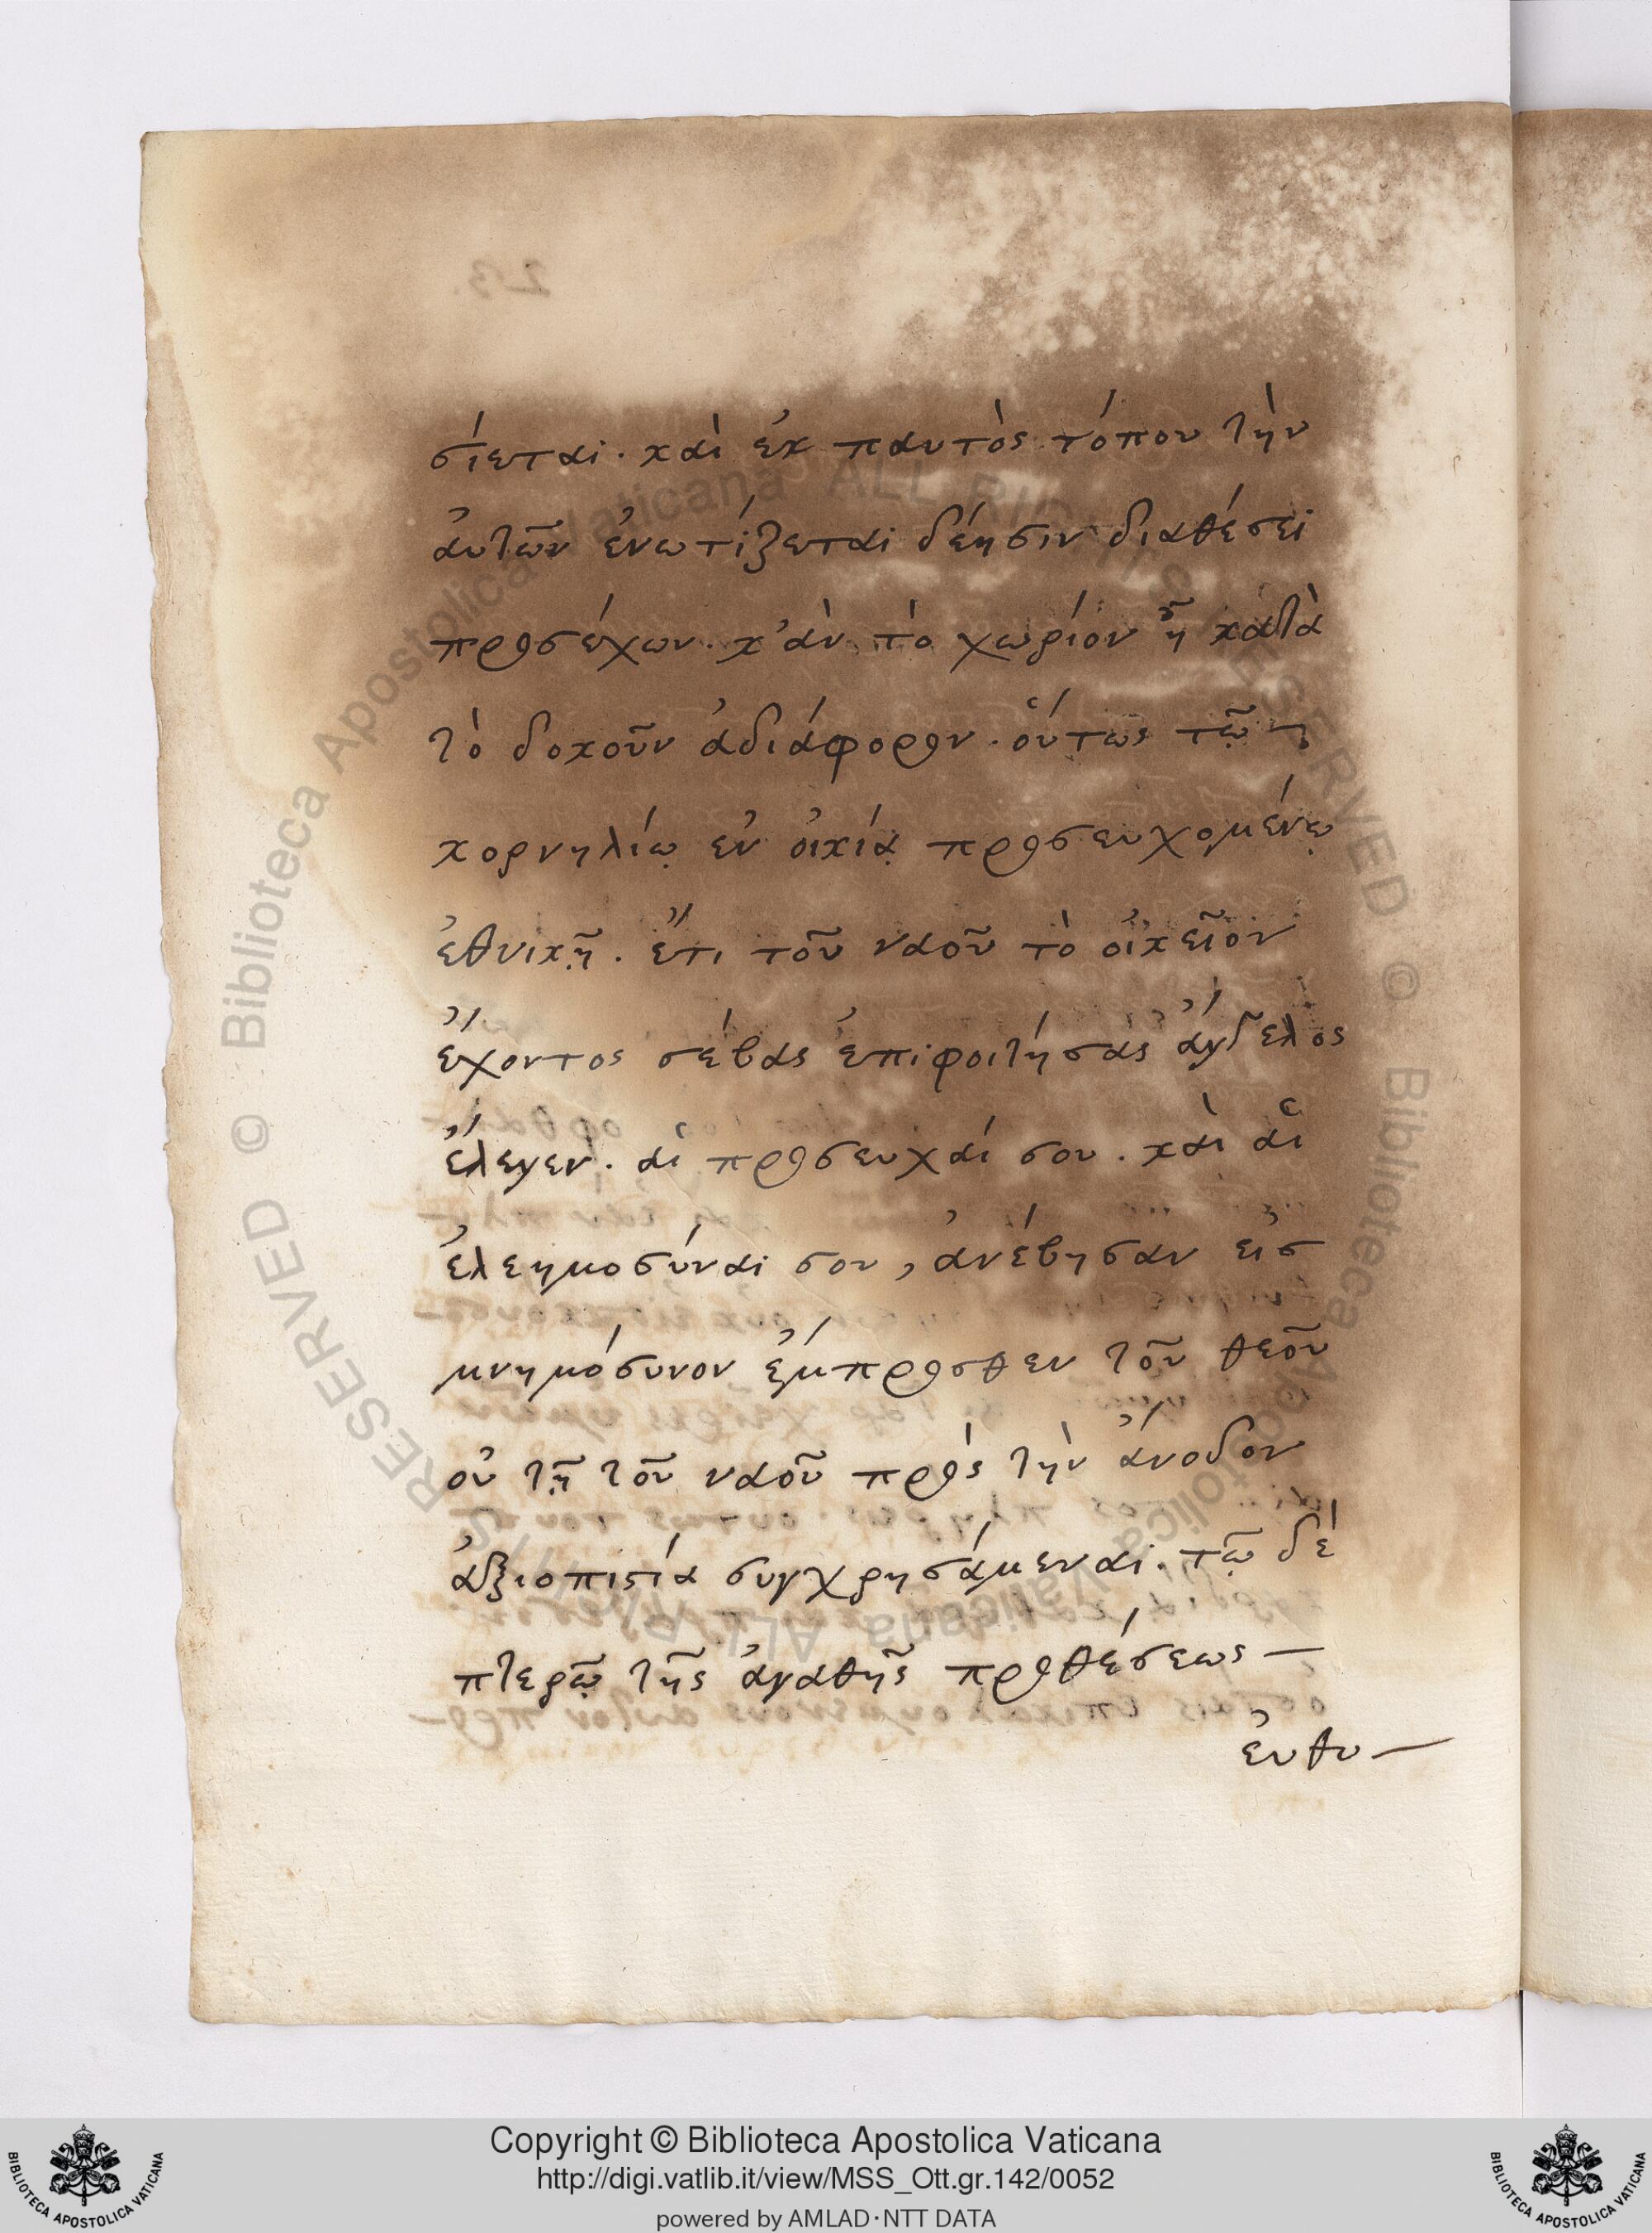 σίεται. καὶ ἐκ παντὸς τόπου τὴν
ἀυτῶν ἐνωτίζεται δέησιν διαθέσει
προσέχων. κ’ἀν τὸ χωρίον ῆ κατὰ
τὸ δοκοῦν ἀδιάφορον. οὕτως τῷ
κορνηλίῳ ἐν ὀικίᾳ προσευχομένῳ
ἐθνικῇ. ἔτι τοῦ ναοῦ τὸ οἰκεῖον
ἔχοντος σέβας ἐπιφοιτήσας ἄγγελος
ἔλεγεν. αἱ προσευχάι σου. καὶ αἱ
ἐλεημοσύναι σου, ἀνέβησαν εἰσ
μνημόσυνον ἔμπροσθεν τοῦ θεοῦ
οὐ τῇ τοῦ ναοῦ πρὸς τὴν ἄνοδον
ἀξιοπιστία συγχρησάμεναι. τῷ δὲ
πτερῷ τῆς ἀγαθῆς προθέσεως —
ἐυθυ—
23.
Biblioteca Apostolica Vaticana ALL RIGHTS RESERVED © Biblioteca Apostolica Vaticana ALL RIGHTS RESERVED ©
Copyright © Biblioteca Apostolica Vaticana
http://digi.vatlib.it/view/MSS_Ott.gr.142/0052
powered by AMLAD·NTT DATA
BIBLIOTECA APOSTOLICA VATICANA
BIBLIOTECA APOSTOLICA VATICANA